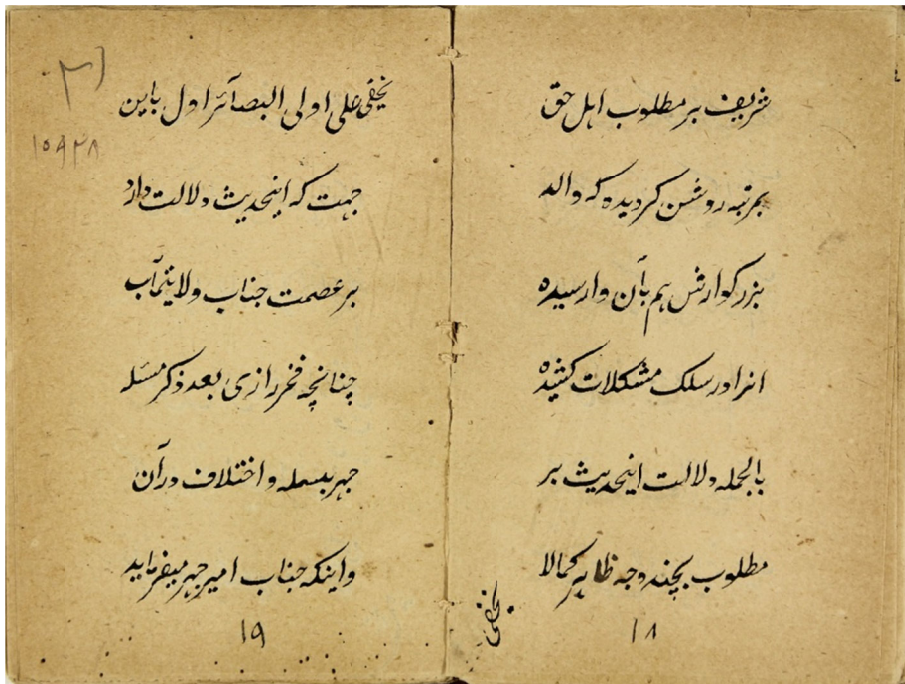 شریف بر مطلوب اهل حق
بمرتبه روشن کردیده که والد
بزرکوارش هم بآن وارسیده
انرا در سلک مشکلات کشیده
بالجمله دلالت اینحدیث بر
مطلوب بچند وجه ظاهر کمالا
یخفی
۱۸
یخفی علی اولی البصآئر اول باین
جهت که اینحدیث دلالت دارد
بر عصمت جناب ولایتمآب
چنانچه فخر رازی بعد ذکر مسئله
جهر بسمله و اختلاف در آن
و اینکه جناب امیر جهر میفرماید
۱۹
۱۵۹۲۸